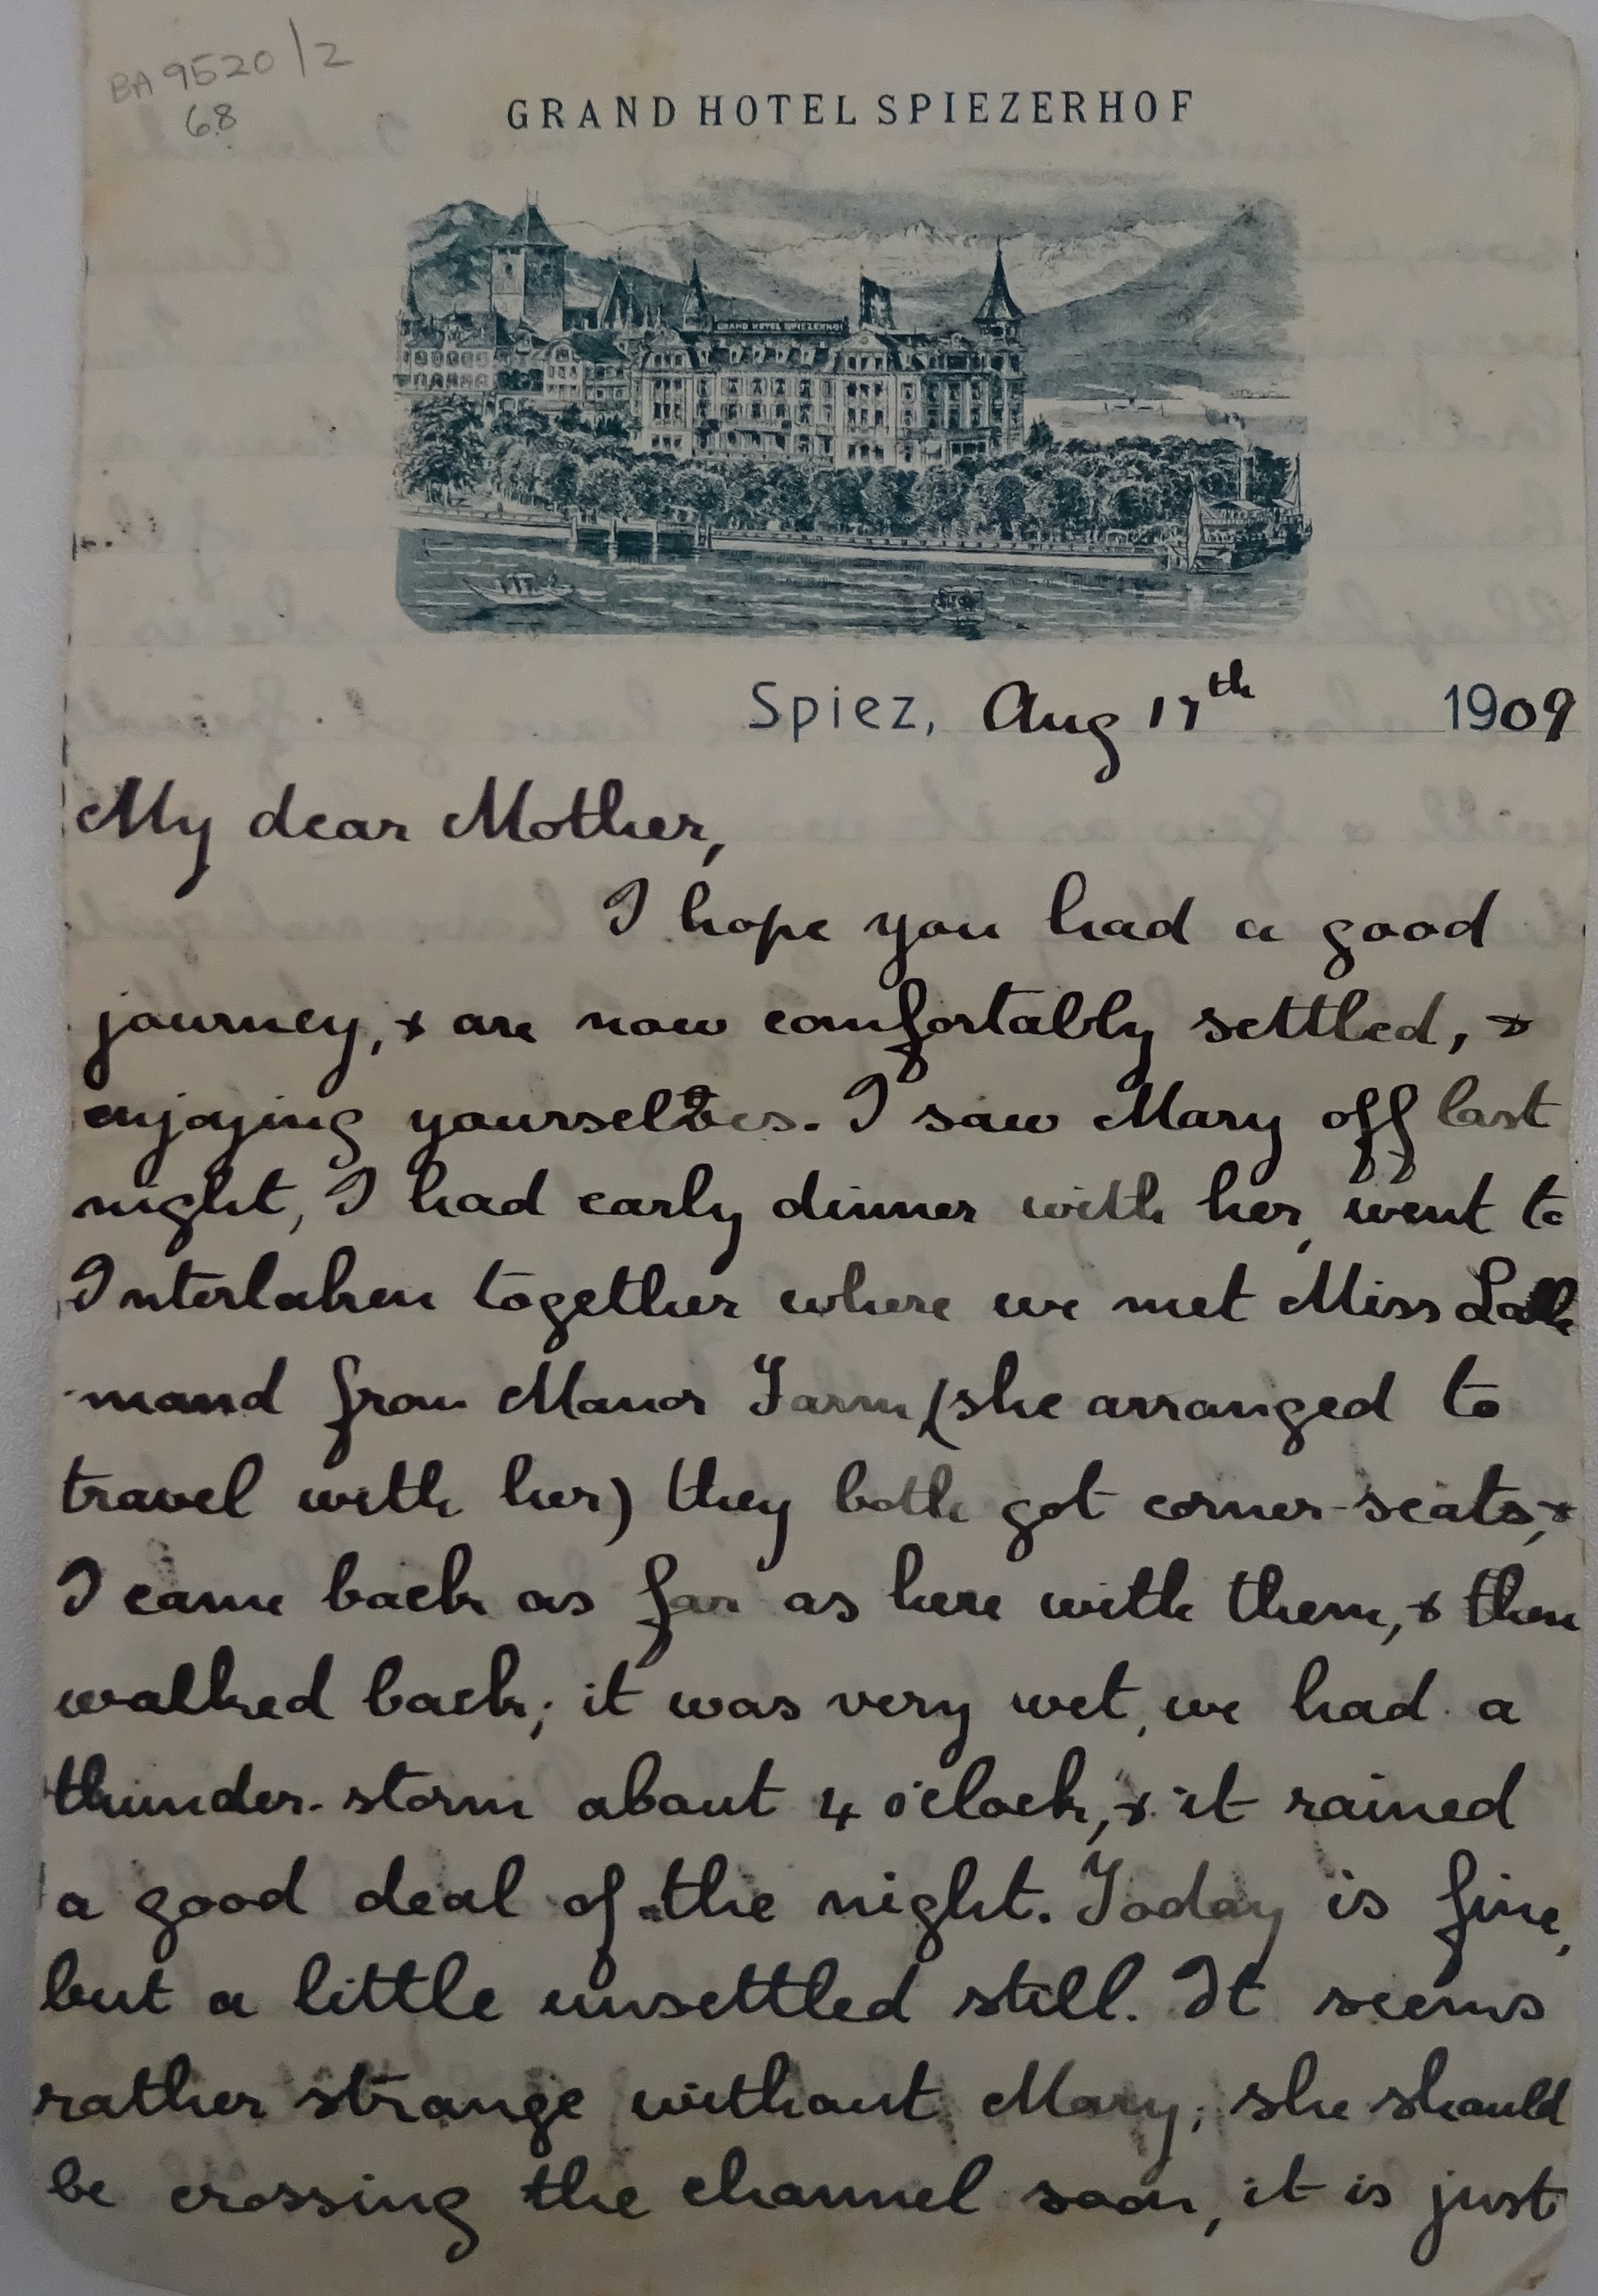 BA 9520/2
68
GRAND HOTEL SPIEZERHOF
GRAND HOTEL SPIEZERHOF
Spiez, Aug 17th 1909
My dear Mother,
I hope you had a good
journey, & are now comfortably settled, &
enjoying yourselves. I saw Mary off last
night, I had early dinner with her, went to
Interlaken together where we met Miss Lalle
-mand from Manor Farm (she arranged to
travel with her) they both got corner-seats, &
I came back as far as here with them, & then
walked back; it was very wet, we had a
thunder-storm about 4 o'clock, & it rained
a good deal of the night. Today is fine,
but a little unsettled still. It seems
rather strange without Mary, she should
be crossing the channel soon, it is just